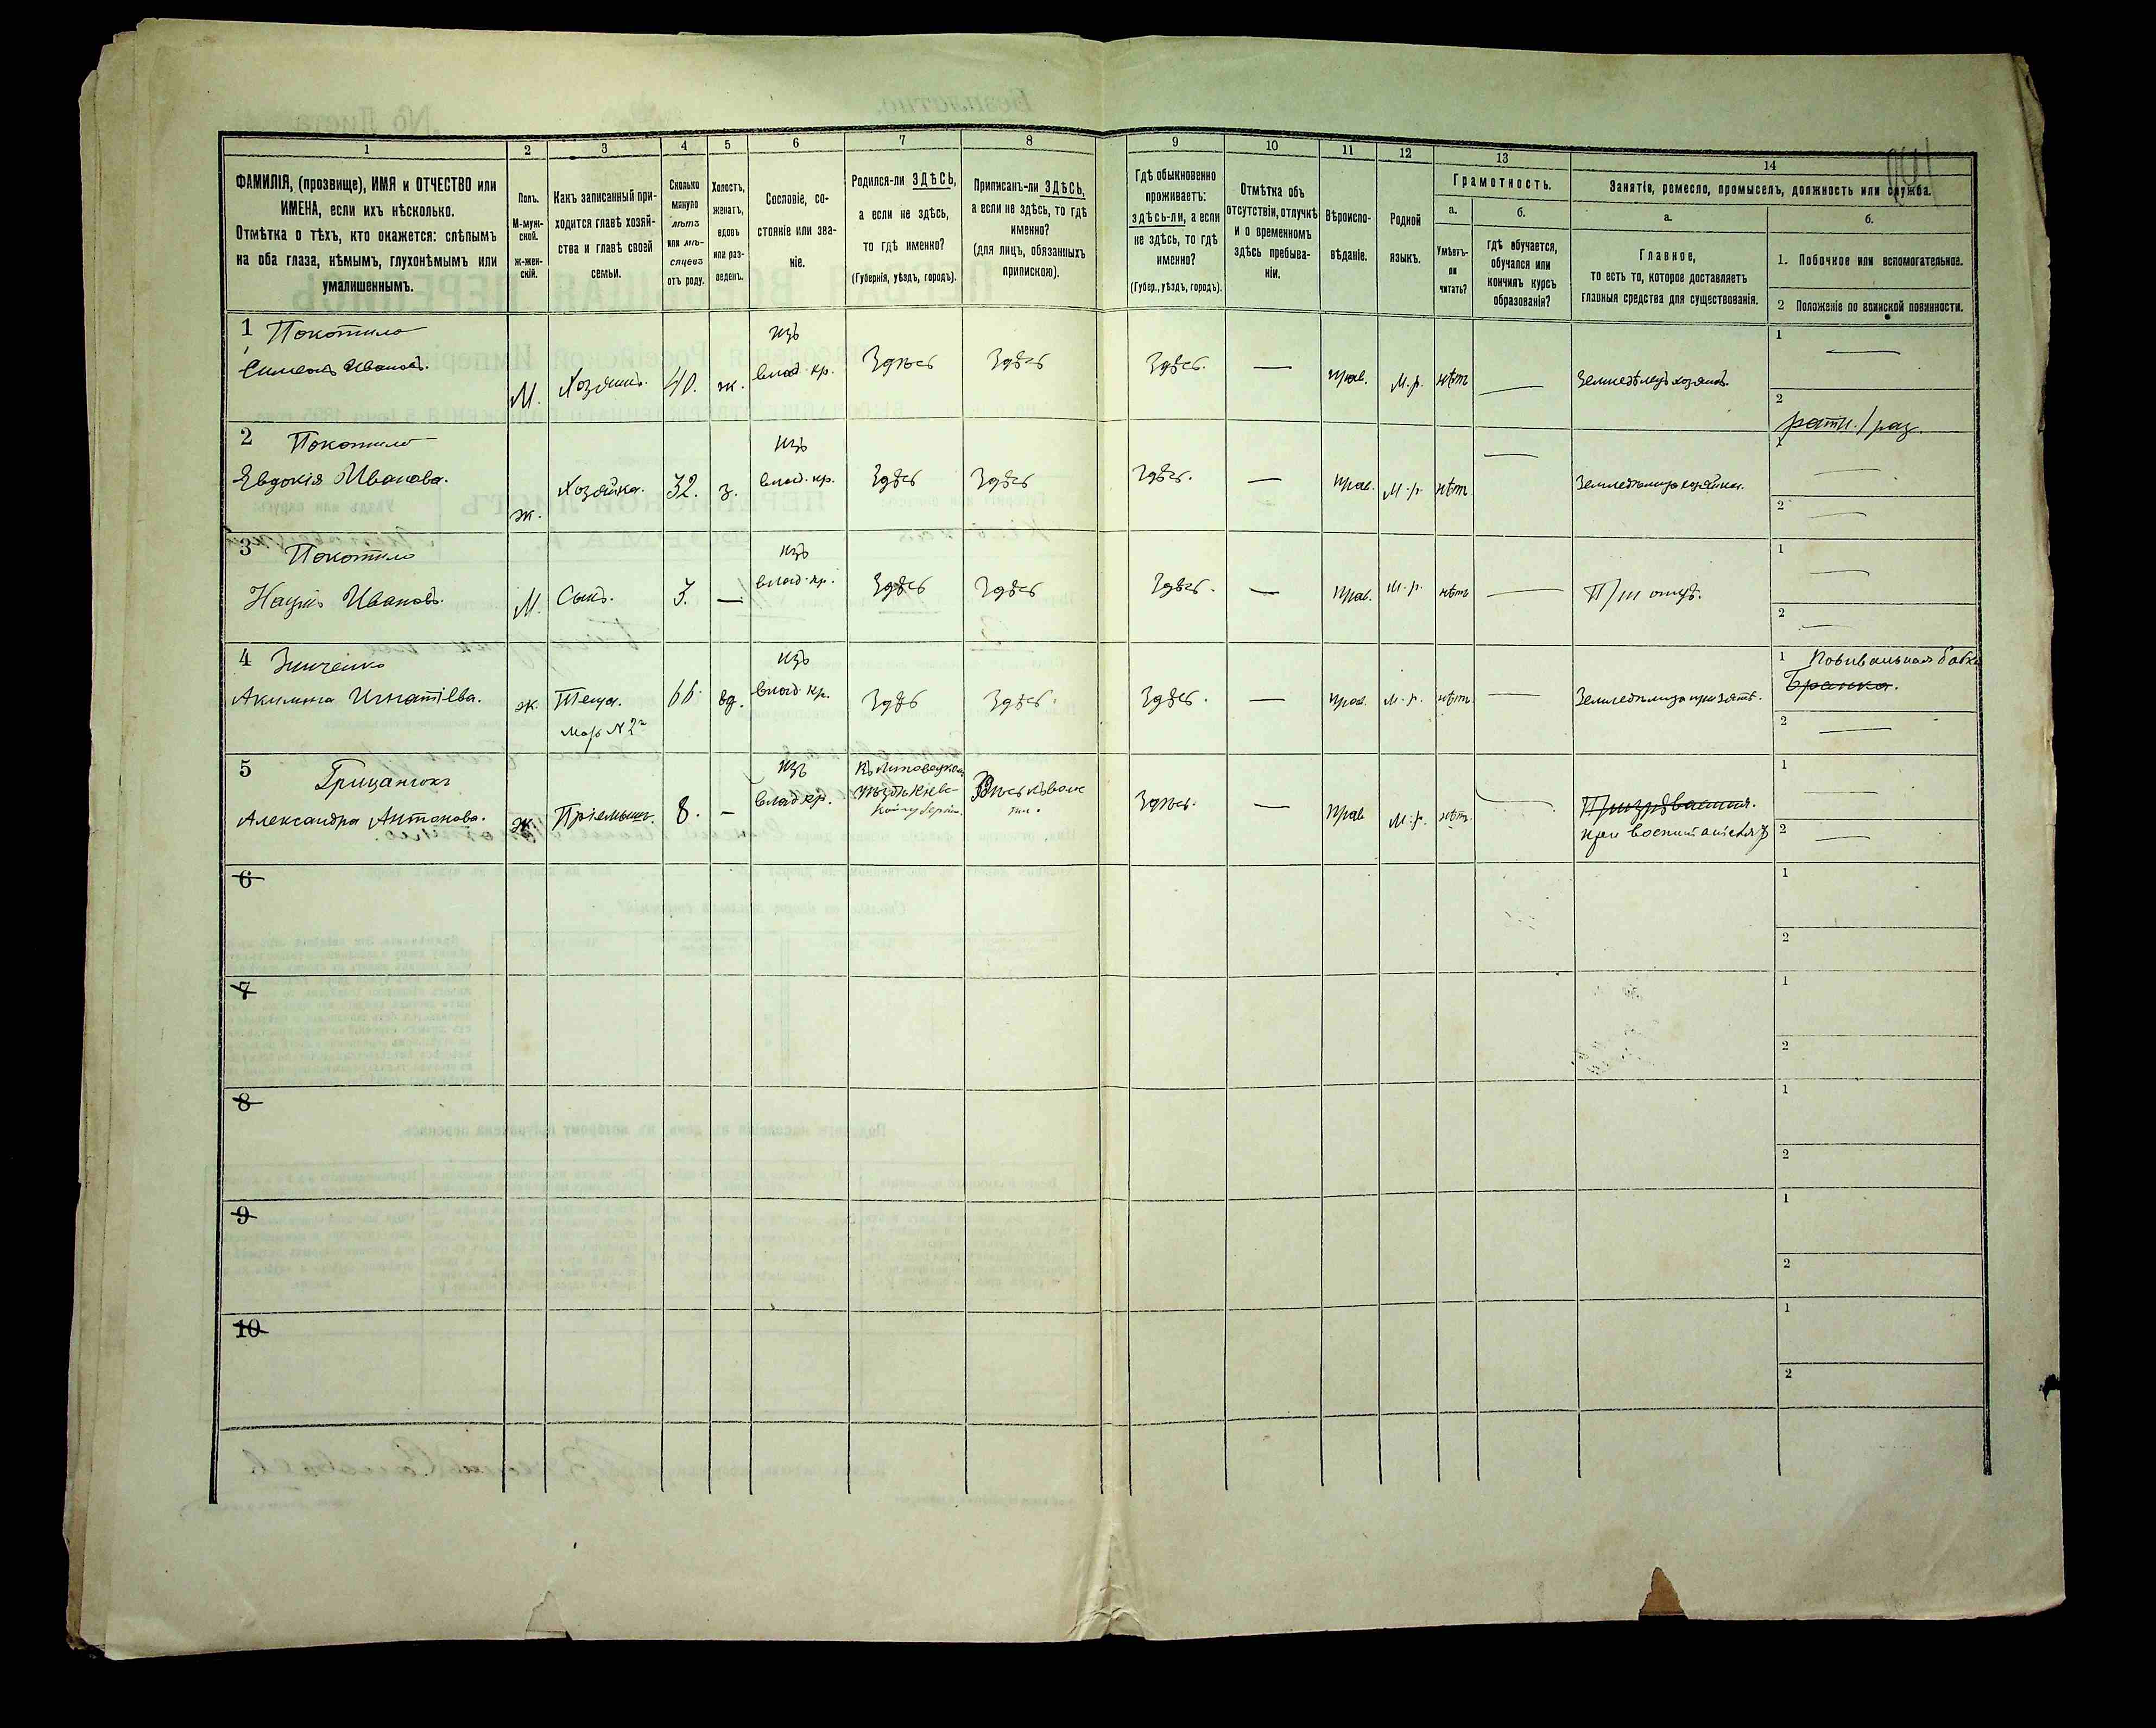 1 2 3 4 5 6 7 8 9 10 11 12 13 14
ФАМИЛІЯ, (прозвище), ИМЯ и ОТЧЕСТВО или
ИМЕНА, если ихъ нѣсколько.
Отмѣтка о тѣхъ, кто окажется: слѣпымъ
на оба глаза, нѣмымъ, глухонѣмымъ или
умалишеннымъ.
Полъ.
М-муж-
ской.
ж-жен-
скій.
Какъ записанный при-
ходится главѣ хозяй-
ства и главѣ своей
семьи.
Сколько
минуло
лѣтъ
или мѣ-
сяцевъ
отъ роду.
Холостъ,
женатъ,
вдовъ
или раз-
веденъ.
Сословіе, со-
стояніе или зва-
ніе.
Родился-ли ЗДѢСЬ,
а если не здѣсь,
то гдѣ именно?
(Губернія, уѣздъ, городъ).
Приписанъ-ли ЗДѢСЬ,
а если не здѣсь, то гдѣ
именно?
(для лицъ, обязанныхъ
припискою).
Гдѣ обыкновенно
проживаетъ:
здѣсь-ли, а если
не здѣсь, то гдѣ
именно?
(Губер., уѣздъ, городъ).
Отмѣтка объ
отсутствіи, отлучкѣ
и о временномъ
здѣсь пребыва-
ніи.
Вѣроиспо-
вѣданіе.
Родной
языкъ.
Грамотность.
а.
Умѣетъ-
ли
читать?
б.
гдѣ обучается,
обучался или
кончилъ курсъ
образованія?
Занятіе, ремесло, промыселъ, должность или служба.
а.
Главное,
то есть то, которое доставляетъ
главныя средства для существованія.
б.
1. Побочное или вспомогательное.
2 Положеніе по воинской повинности.
1 Покотило
Симеонъ Ивановъ.
М. Хозяинъ. 40. ж. изъ
влад. кр. Здѣсь Здѣсь Здѣсь. — прав. М.р. нѣтъ — Земледѣлецъ хозяинъ. 1 —
2 ратн. 1 раз.
2 Покотило
Евдокія Иванова.
ж. Хозяйка. 32. з. изъ
влад. кр. Здѣсь Здѣсь Здѣсь. — прав. М.р. нѣтъ — Земледѣлица хозяйка. 1 —
2 —
3 Покотило
Наумъ Ивановъ.
М. Сынъ. 3. — изъ
влад. кр. Здѣсь Здѣсь Здѣсь. — прав. М.р. нѣтъ — П/ш отцѣ. 1 —
2 —
4 Зинченко
Акилина Игнатіева.
ж. Теща.
мать N 2й
66. вд. изъ
влад. кр. Здѣсь Здѣсь. Здѣсь. — прав. М.р. нѣтъ. — Земледѣлица при зятѣ. 1 Повивальная бабка
Бранка.
2 —
5 Грицанюкъ
Александра Антонова.
ж. Пріемышъ. 8. — изъ
влад кр. Въ Липовецкомъ
уѣздѣ Кіев-
ской губерніи.
Здѣсь къ волос
ти.
Здѣсь. — прав М.р. нѣтъ. —
Призрѣваемая.
при воспитателѣ
1 —
2 —
6
1
2
7
1
2
8
1
2
9
1
2
10
1
2